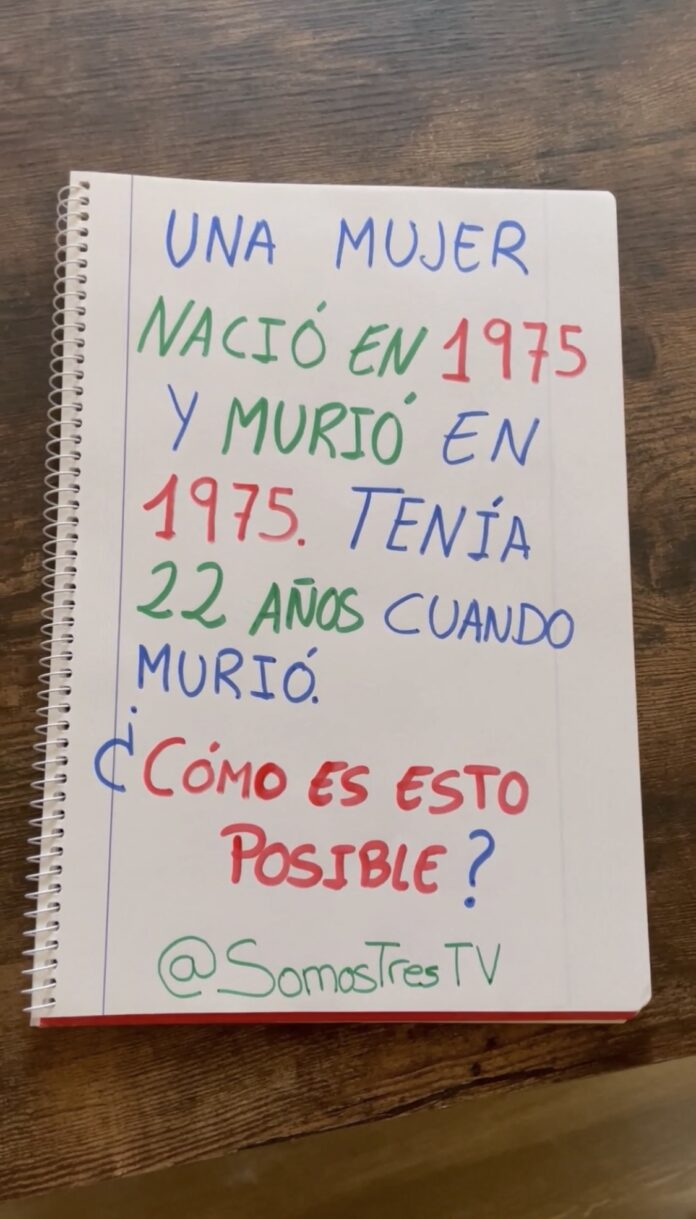 UNA MUJER
NACIÓ EN 1975
Y MURIÓ EN
1975. TENÍA
22 AÑOS CUANDO
MURIÓ.
¿CÓMO ES ESTO
POSIBLE?
@SomosTresTV